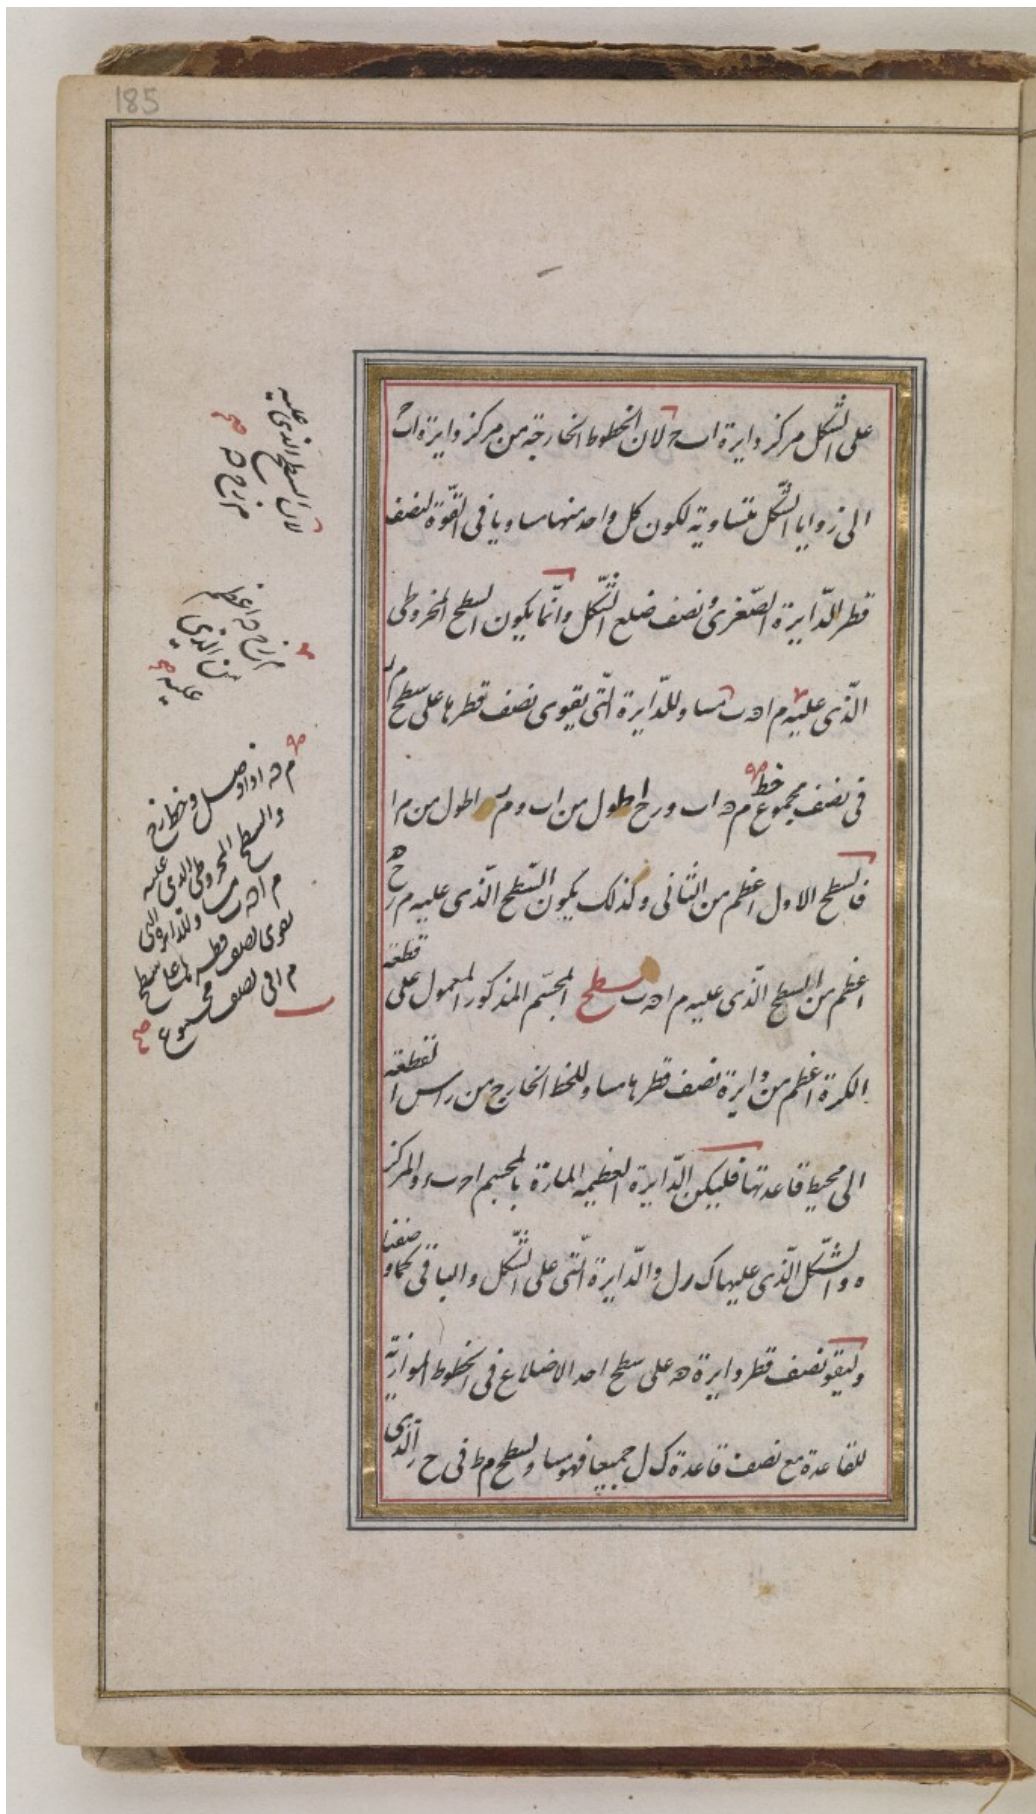 185
على الشكل مركز دايرة اب ح لان الخطوط الخارجة من مركز دايرة اب ح
الى زوايا الشكل متساوية لكون كل واحد منها مساويا فى القوة لنصف
قطر الدايرة الصغرى ونصف ضلع الشكل وانما يكون السطح المخروطى
الذى عليه م ا ه ب مساو للدايرة التى يقوى نصف قطرها على سطح م ا
فى نصف مجموع خط م ه اب و رح اطول من اب و م ر اطول من م ا
فالسطح الاول اعظم من الثانى وكذلك يكون السطح الذى عليه م ر ح ه
اعظم من السطح الذى عليه م ا ه ب سطح المجسم المذكور المعمول على قطعة
الكرة اعظم من دايرة نصف قطرها مساو للخط الخارج من راس القطعة
الى محيط قاعدتها فليكن الدايرة العظيمة المارة بالمجسم ا ح ب والمركز
ه والشكل الذى عليها ك ر ل والدايرة التى على الشكل والباقى كما وصفنا
وليقو نصف قطر دايرة ه على سطح احد الاضلاع فى الخطوط الموازية
للقاعدة مع نصف قاعدة ك ل جميعا فهو مساو لسطح م ط فى ح ر الذى
لان السطح الذى عليه
م ر ح ه صح
م ر ح ه اعظم
من الذى
عليه صح
م ه اذا وصل وخطا رح
والسطح المخروطى الذى عليه
م ا ه ب مساو للدايرة التى
يقوى نصف قطرها على سطح
م ا فى نصف مجموع صح